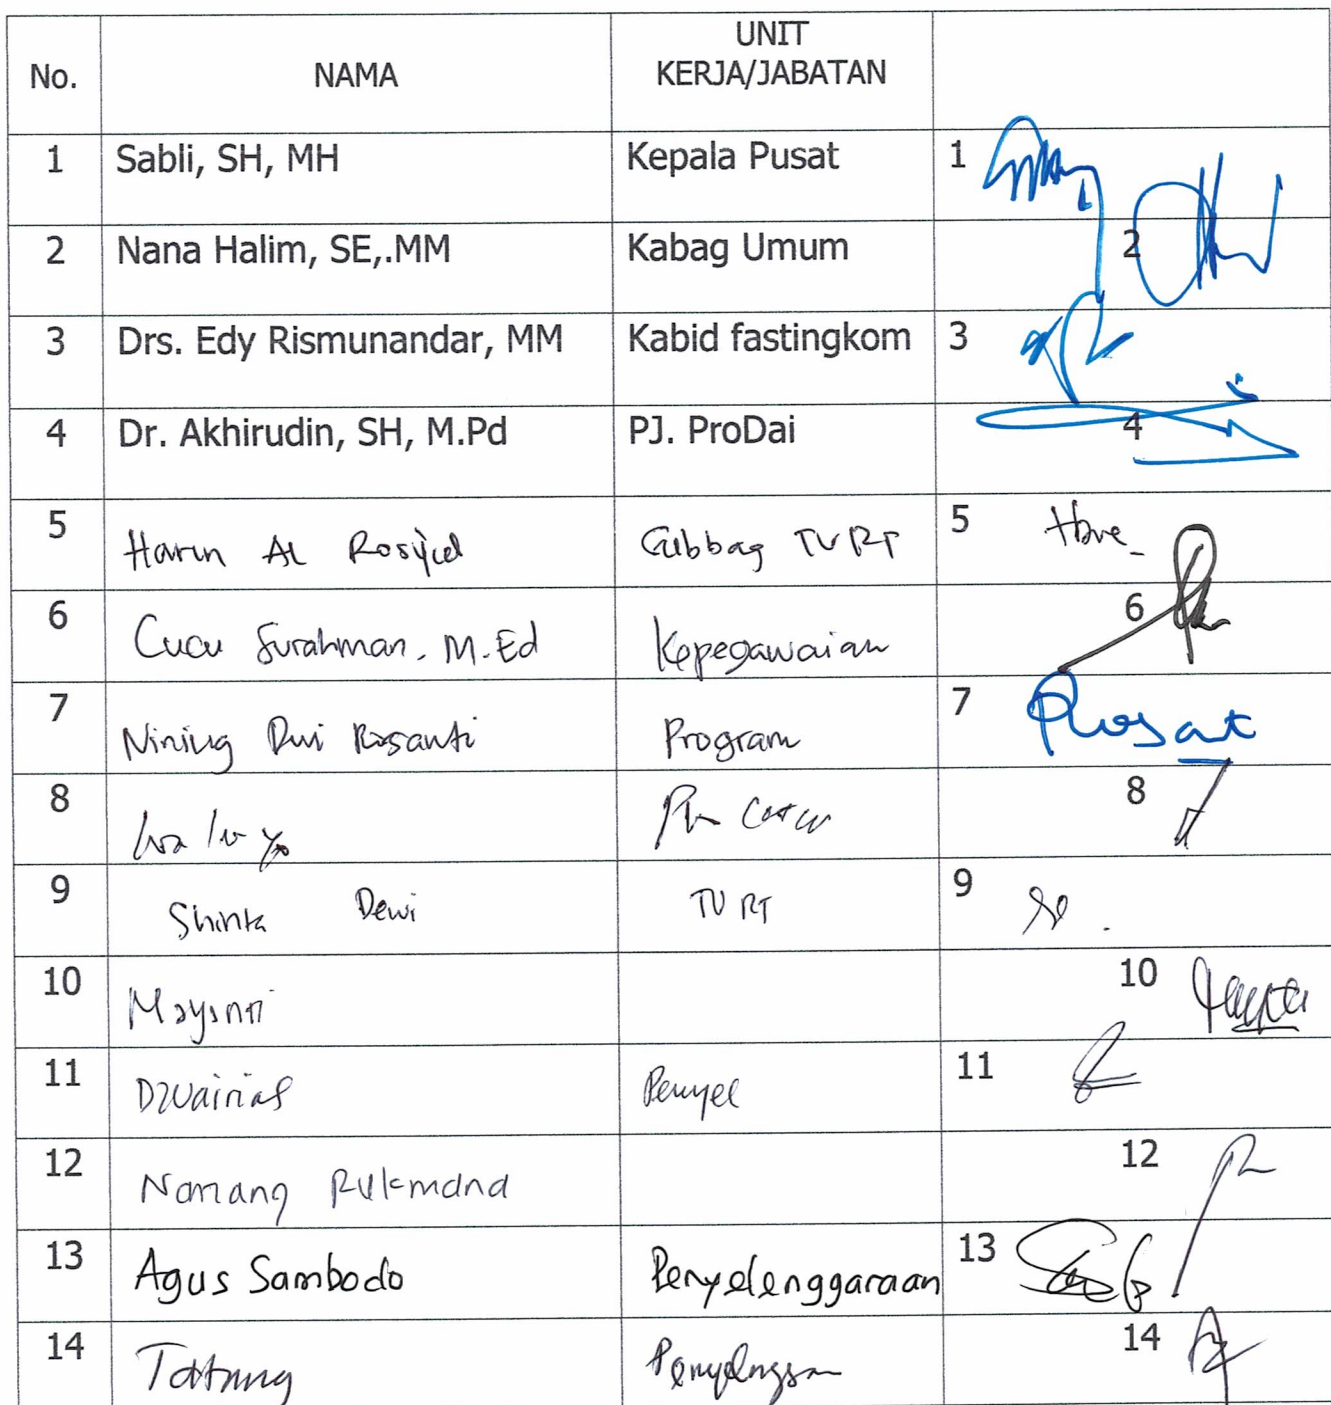 No. NAMA UNIT
KERJA/JABATAN
1 Sabli, SH, MH Kepala Pusat 1
2 Nana Halim, SE,.MM Kabag Umum 2
3 Drs. Edy Rismunandar, MM Kabid fastingkom 3
4 Dr. Akhirudin, SH, M.Pd PJ. ProDai 4
5 Harun Al Rosyid TU RT 5
6 Cucu Surahman. M.Ed Kepegawaian 6
7 Nining Dwi Rosanti Program 7 Rosant
8 Waluyo 8
9 Shinta Dewi TU RT 9
10 Mayanti 10
11 Dzwairias Penyel 11
12 Nanang Rukmana 12
13 Agus Sambodo Penyelenggaraan 13
14 Tatang 14